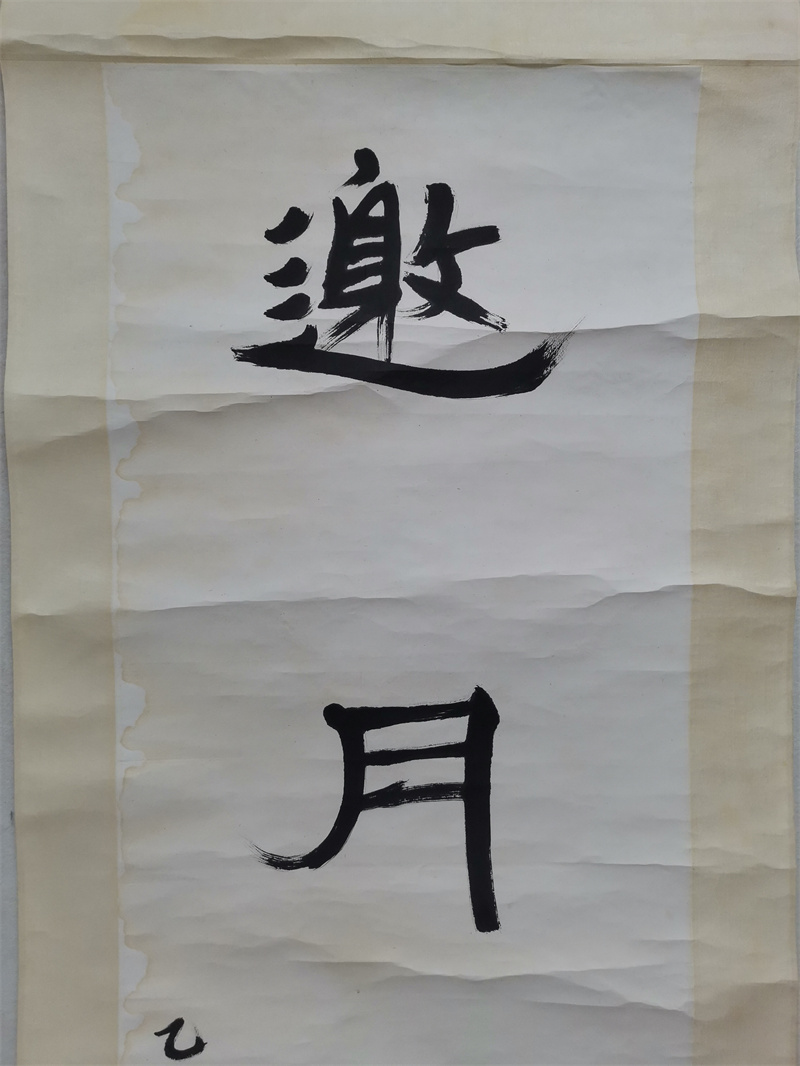 邀
月
乙